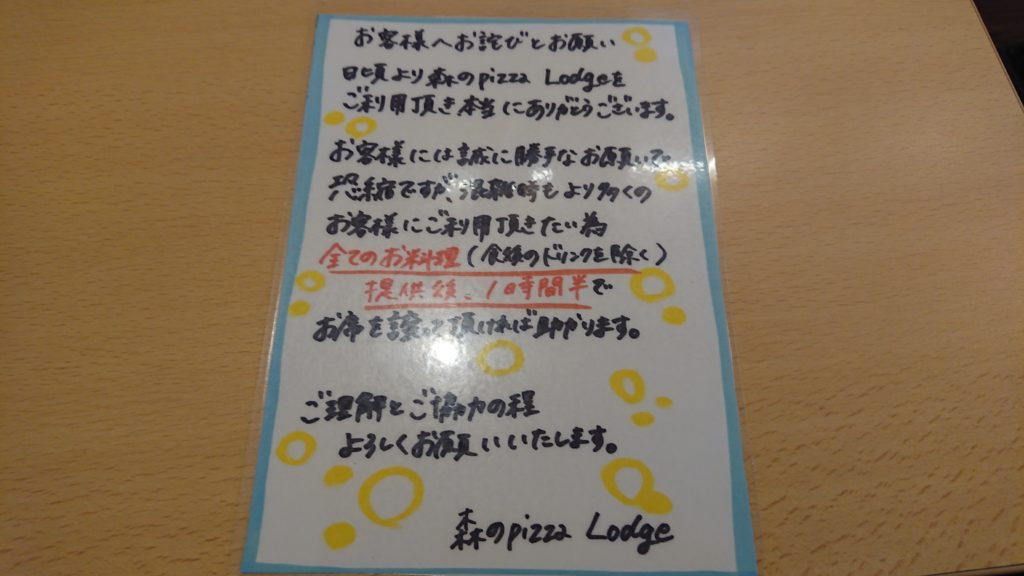 お客様へお詫びとお願い
日頃より森のpizza Lodgeを
ご利用頂き本当にありがとうございます。
お客様には誠に勝手なお願いで
恐縮ですが、混雑時もより多くの
お客様にご利用頂きたい為
全てのお料理(食後のドリンクを除く)
提供後、1時間半で
お席を譲って頂ければ助かります。
ご理解とご協力の程
よろしくお願いいたします。
森のpizza Lodge